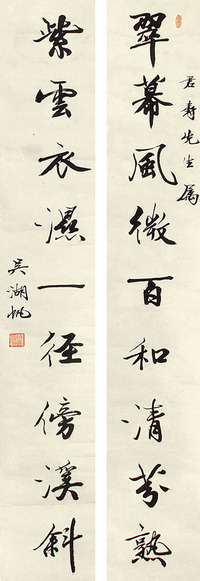 翠幕風微百和清芬熟
君寿先生属
紫雲衣濕一徑傍溪斜
吳湖帆